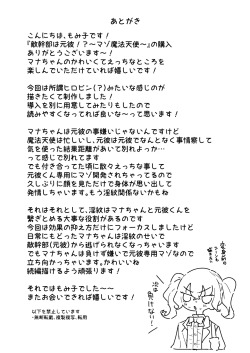 あとがき
こんにちは、もみ子です！
『敵幹部は元彼！？～マゾ魔法天使～』の購入
ありがとうございます～！
マナちゃんのかわいくてえっちなところを
楽しんでいただけていれば嬉しいです！
今回は所謂ヒロピン(？)みたいな感じのが
描きたくて制作しました！
導入を別に用意してみたりもしたので
読みやすくなってれば良いな～って思います！
マナちゃんは元彼の事嫌いじゃないんですけど
魔法天使は忙しいし、元彼は元彼でなんとなく事情察して
気を使った結果距離があいて別れよっか…
って感じで別れてます
でも付き合ってた頃に散々えっちな事して
元彼くん専用にマゾ開発されちゃってるので
久しぶりに顔を見ただけで身体が思い出して
発情しちゃいます。もう淫紋関係ないかもね
それはそれとして、淫紋はマナちゃんと元彼くんを
繋ぎとめる大事な役割があるのです
今回は効果の抑え方だけにフォーカスしましたけど
日常にもどったマナちゃんは淫紋のせいで
敵幹部(元彼)から逃げられなくなっちゃいます
でもマナちゃんは負けず嫌いで元彼専用マゾなので
立ち向かっちゃいます。かわいいね
続編描けるよう頑張ります！
それではもみ子でした～
またお会いできれば嬉しいです！
以下を禁止しています
・無断転載、複製複写、転用
次は
負けない！！